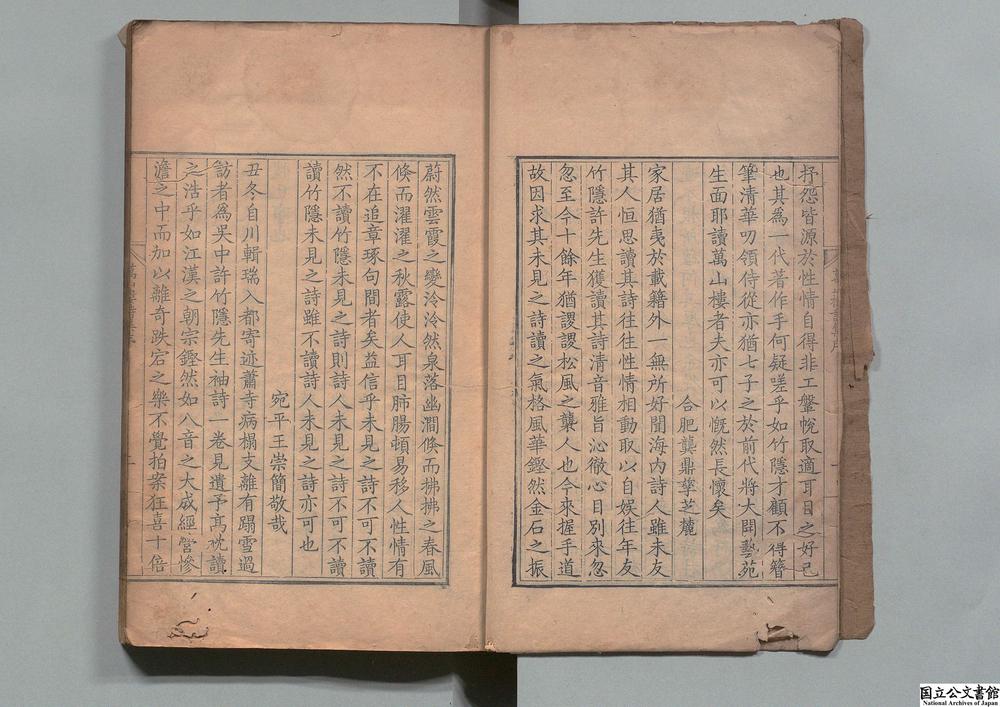 抒怨皆源於性情自得非工鞶帨取適耳目之好已
也其為一代著作手何疑嗟乎如竹隱才顧不得簪
筆清華叨領侍從亦猶七子之於前代將大闢藝苑
生面耶讀萬山樓者夫亦可以慨然長懷矣
合肥龔鼎孳芝麓
家居猶夷於載籍外一無所好聞海內詩人雖未友
其人恒思讀其詩往往性情相動取以自娱往年友
竹隱許先生獲讀其詩清音雅旨沁徹心目別來忽
忽至今十餘年猶謖謖松風之襲人也今來握手道
故因求其未見之詩讀之氣格風華鏗然金石之振
蔚然雲霞之變泠泠然泉落幽澗倏而拂拂之春風
倏而濯濯之秋露使人耳目肺腸頓易移人性情有
不在追章琢句間者矣益信乎未見之詩不可不讀
然不讀竹隱未見之詩則詩人未見之詩不可不讀
讀竹隱未見之詩雖不讀詩人未見之詩亦可也
宛平王崇簡敬哉
丑冬自川輯瑞入都寄迹蕭寺病榻支離有蹋雪過
訪者為吳中許竹隱先生袖詩一卷見遺予髙枕讀
之浩乎如江漢之朝宗鏗然如八音之大成經營慘
澹之中而加以離奇跌宕之樂不覺拍案狂喜十倍
国立公文書館
National Archives of Japan